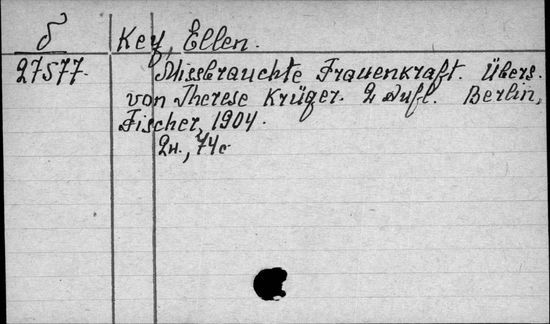 δ Key, Ellen.
27577. Missbrauchte Frauenkraft. Übers.
von Therese Krüger. 2 Aufl. Berlin,
Fischer, 1904.
2н., 74с